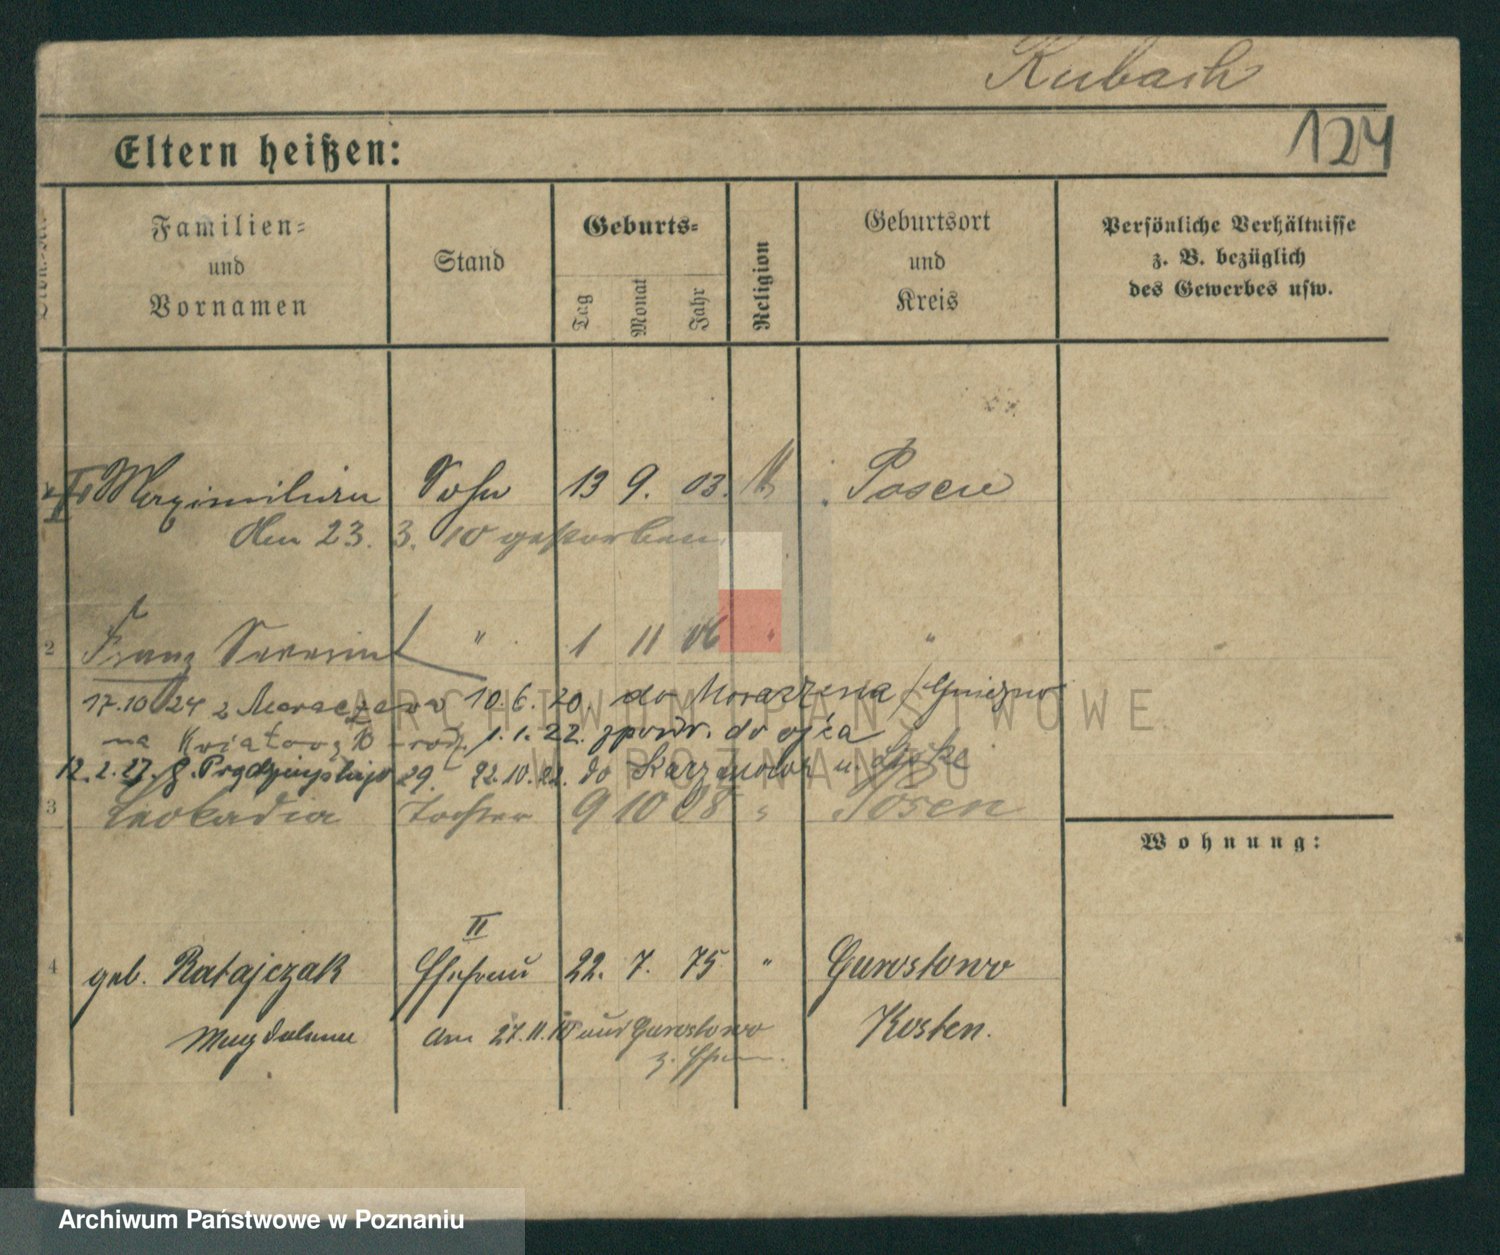 Kubach
124
Eltern heißen:
Familien-
und
Vornamen
Stand
Geburts-
Tag
Monat
Jahr
Religion
Geburtsort
und
Kreis
Persönliche Verhältnisse
z. B. bezüglich
des Gewerbes usw.
Maximilian Sohn 13 9. 03. Posen
Am 23. 3. 10 gestorben
2 Franz Severin " 1 11 06 " "
17.10 24 z 10.6.20. do /Gniezno
na 1.1.22. zpowr. do ojca
12.2.27. 29. 22.10.22. do
3 Leokadia Tochter 9 10 08 " Posen
Wohnung:
II
4 geb. Ratajczak Ehefrau 22. 7. 75 " Gurostowo
Magdalena Am 27.11.10 aus Gurostowo Kosten.
z.
ARCHIWUM PAŃSTWOWE
W POZNANIU
Archiwum Państwowe w Poznaniu